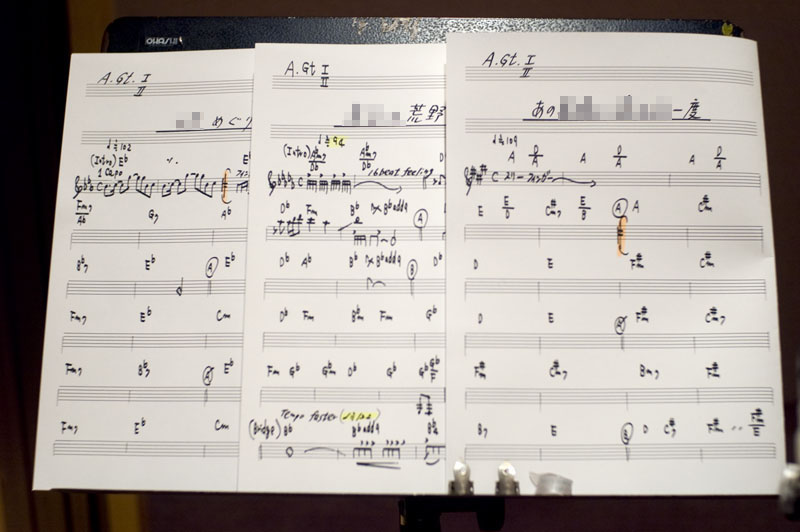 OHASHI
A. Gt. I
II
めぐり
♩=102
(Intro) E♭ ٪. E♭
1 Capo
Fm7/A♭ G7 A♭
B♭7 E♭ A E♭
Fm7 E♭ Cm
Fm7 B♭7 A' E♭
Fm7 E♭ Cm
A. Gt I
II
荒野
♩=94
(Intro) A♭m7/D♭ A♭m7/D♭
16beat feeling
D♭ Fm B♭ B♭add9 A
D♭ A♭ B♭ B♭add9 B
D♭ Fm B♭m Fm G♭
Fm G♭ G♭m D♭ G♭ G♭ G♭/F
Tempo faster
(Bridge) B♭ B♭add9
A. Gt. I
II
あの 一度
♩=109
A D/A A D/A A D/A
C スリーフィンガー
E E/D C#m7 E/B A A C#m
D E F#m C#m
D E A' F#m C#m7
F# C#m Bm7 F#
B7 E B D C# F# F#/E